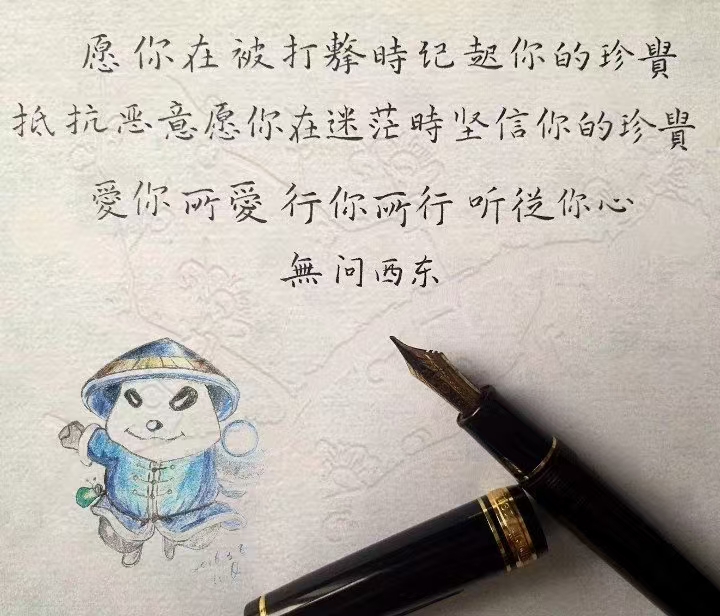 愿你在被打擊時记起你的珍貴
抵抗恶意愿你在迷茫時坚信你的珍貴
愛你所愛 行你所行 听從你心
無问西东